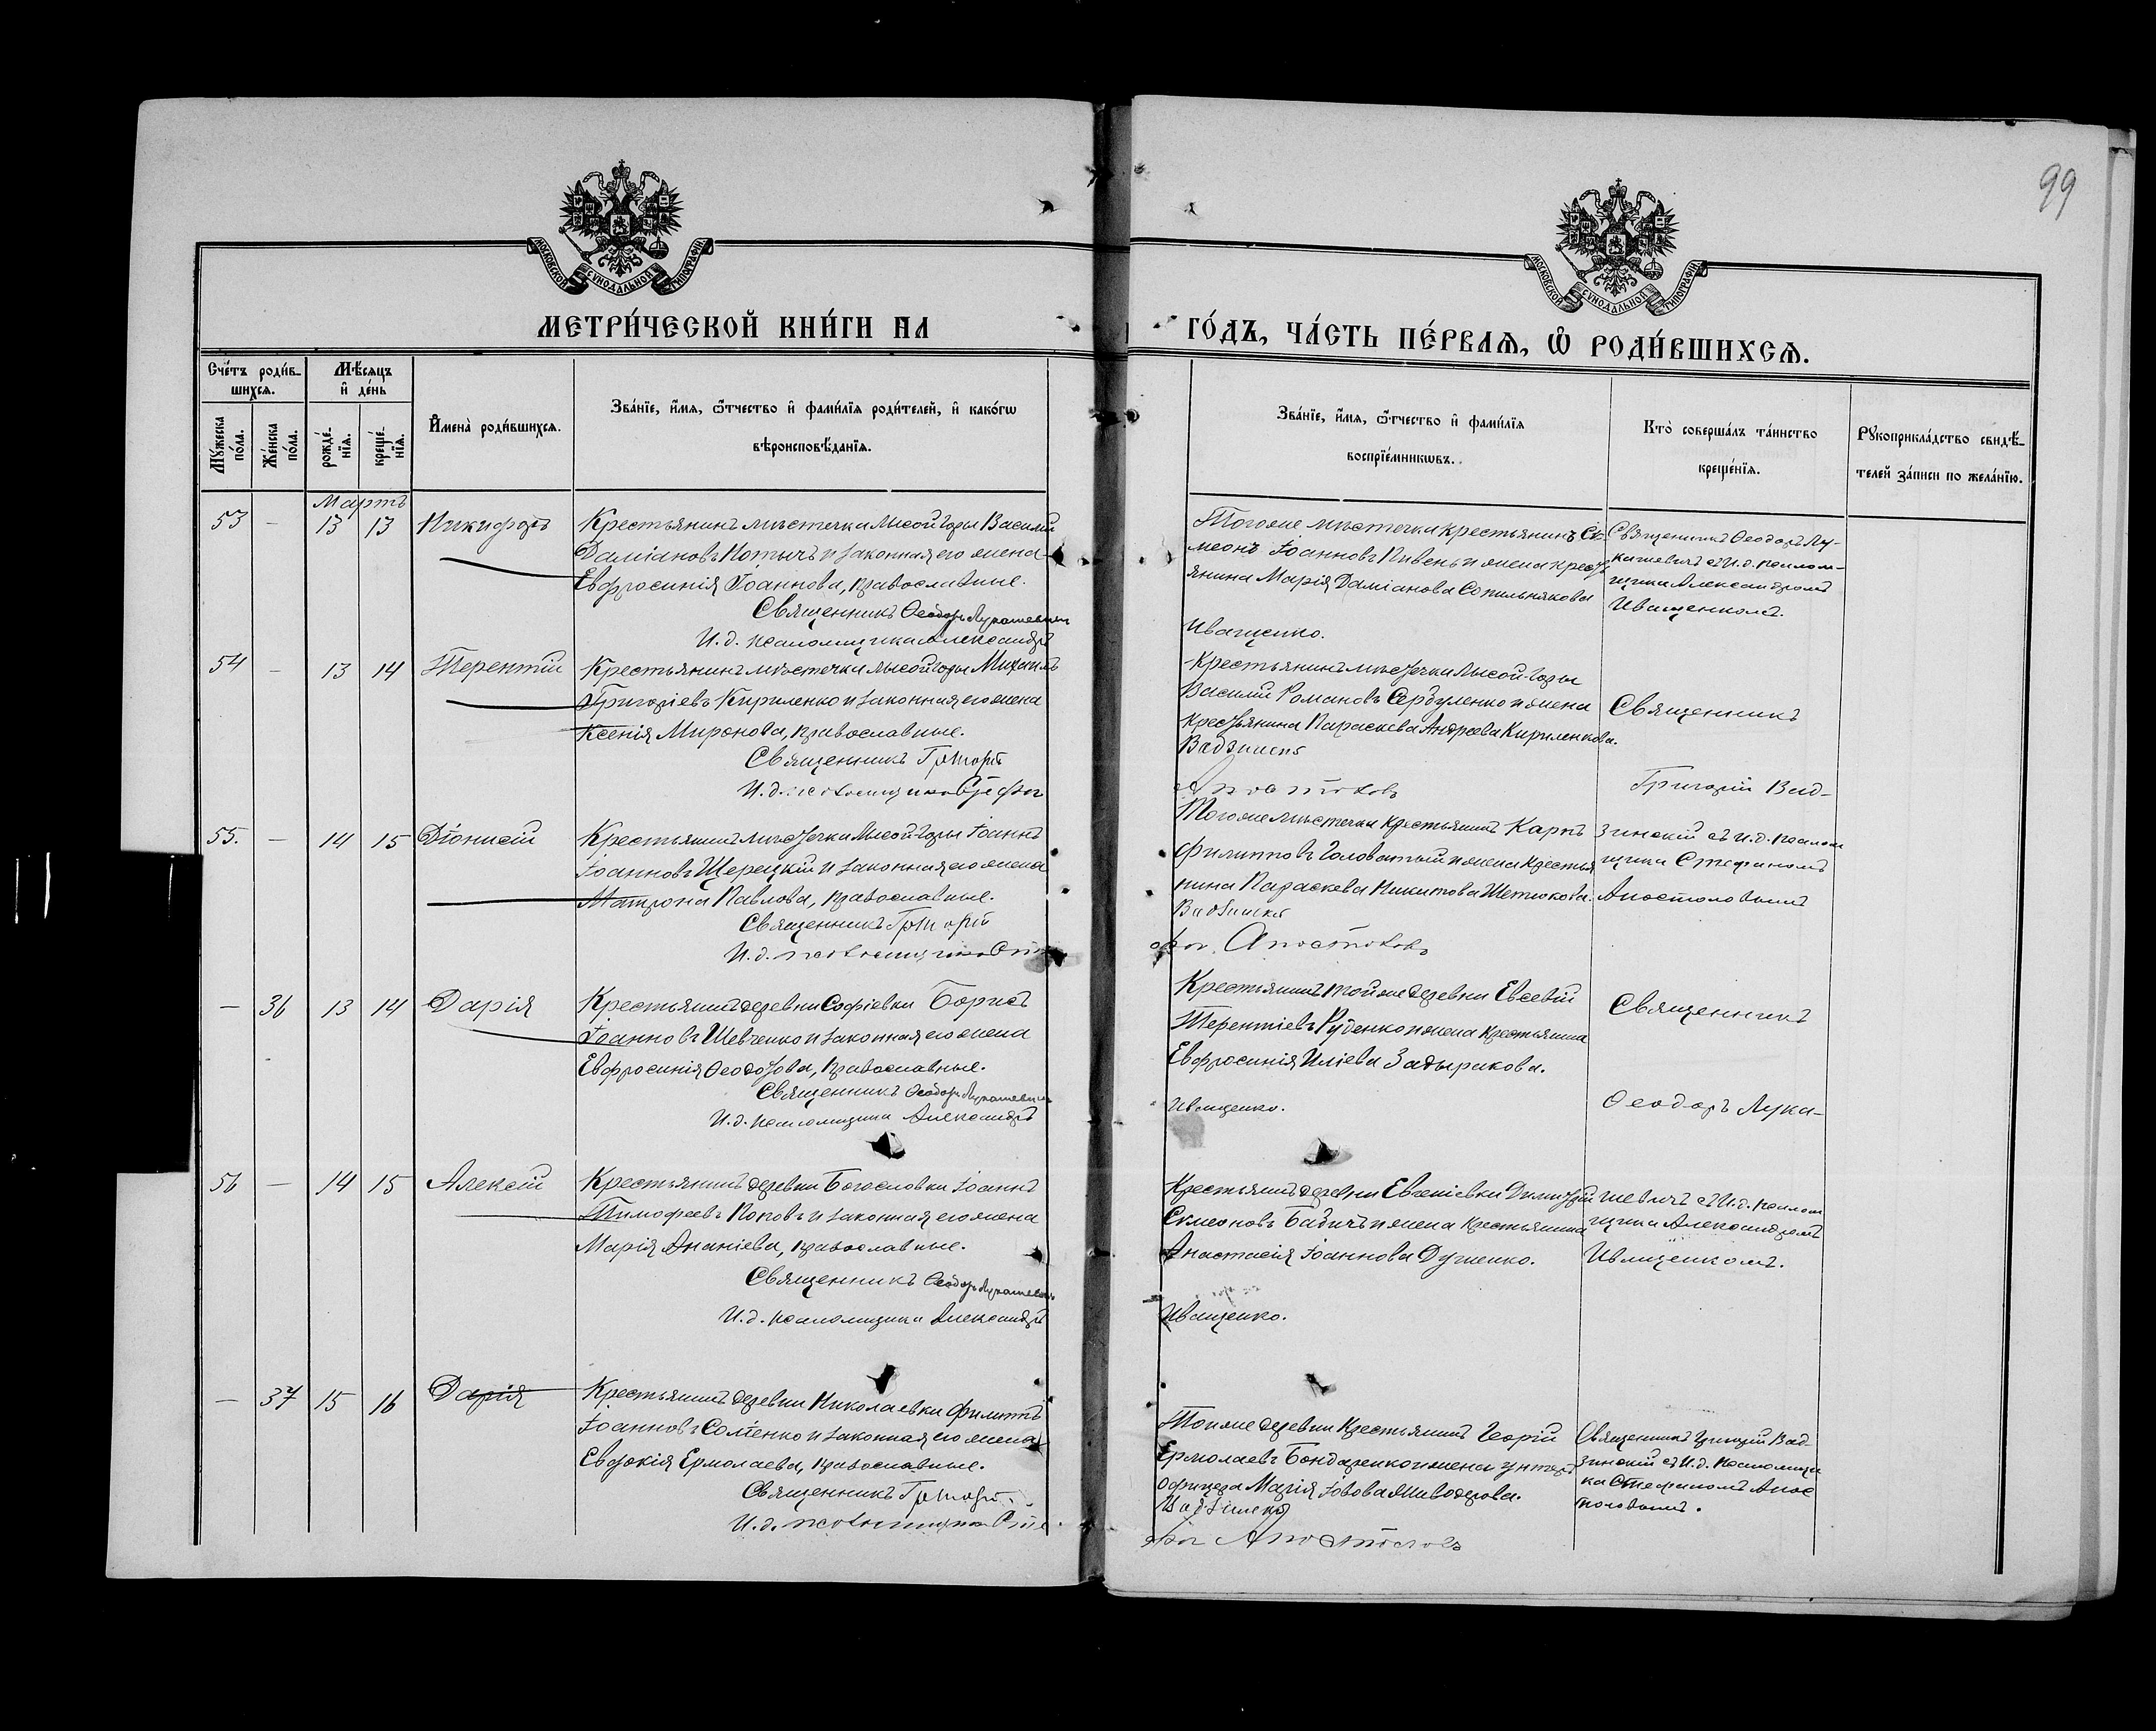 99
МОСКОВСКОЙ СУНОДАЛЬНОЙ ТИПОГРАФІИ
МОСКОВСКОЙ СУНОДАЛЬНОЙ ТИПОГРАФІИ
МЕТРИ́ЧЕСКОЙ КНИ́ГИ НА
ГО́ДЪ, ЧА́СТЬ ПЕ́РВАѦ, Ѡ҆ РОДИ́ВШИХСѦ.
Сче́тъ роди́в-
шихсѧ.
Мꙋ́жеска по́ла.
Же́нска по́ла.
Мѣ́сѧцъ
и҆ де́нь
рожде́-нїѧ.
креще́-нїѧ.
И҆мена̀ роди́вшихсѧ.
Зва́нїе, и҆́мѧ, ѻ҆́тчество и҆ фами́лїѧ роди́телей, и҆ како́гѡ
вѣроисповѣ́данїѧ.
Зва́нїе, и҆́мѧ, ѻ҆́тчество и҆ фами́лїѧ
воспрїе́мникѡвъ.
Кто̀ соверша́лъ та́инство
креще́нїѧ.
Рꙋкоприкла́дство свидѣ́-
телей за́писи по жела́нїю.
Мартъ
53 - 13 13 Никифоръ
Крестьянинъ мѣстечка Лысой Горы Василій
Даміановъ Потычъ и законная его жена
Евфросинія Іоаннова, православные.
Священникъ Ѳеодоръ Лукашевичъ
И.д. псаломщика Александръ
Тогоже мѣстечка крестьянинъ Си-
меонъ Іоанновъ Пивень и жена крест-
янина Марія Даміанова Сопильнякова
Иващенко.
Священникъ Ѳеодоръ Лу-
кашевичъ съ И.д. псалом-
щика Александромъ
Иващенкомъ.
54 - 13 14 Терентій
Крестьянинъ мѣстечка Лысой Горы Михаилъ
Григоріевъ Кириленко и законная его жена
Ксенія Миронова, православные.
Священникъ Григорій
И.д. псаломщика Стефан
Крестьянинъ мѣстечка Лысой-Горы
Василій Романовъ Сербуленко и жена
крестьянина Параскева Андреева Кириленкова.
Вадзинскій
Апостоловъ
Священникъ
Григорій Вад-
55. - 14 15 Діонисій
Крестьянинъ мѣстечка Лысой-Горы Іоаннъ
Іоанновъ Щерецкій и законная его жена
Матрона Павлова, православные.
Священникъ Григорій
И.д. псаломщика Сте
Тогоже мѣстечка крестьянинъ Карпъ
Филипповъ Головатый и жена крестья
нина Параскева Никитова Шетюкова.
Вадзинскій
фан Апостоловъ
зинскій съ И.д. псалом
щика Стефаномъ
Апостоловымъ
- 36 13 14 Дарія
Крестьянинъ деревни Софіевки Борисъ
Іоанновъ Шевченко и законная его жена
Евфросинія Ѳеодотова, православные.
Священникъ Ѳеодоръ Лукашевичъ
И.д. псаломщика Александръ
Крестьянинъ тойже деревни Евсевій
Терентіевъ Руденко и жена крестьянина
Евфросинія Иліева Задырикова.
Иващенко.
Священникъ
Ѳеодоръ Лука-
56 - 14 15 Алексій
Крестьянинъ деревни Богословки Іоаннъ
Тимофеевъ Поповъ и законная его жена
Марія Ананіева, православные.
Священникъ Ѳеодоръ Лукашевичъ
И.д. псаломщика Александръ
Крестьянинъ деревни Евгеніевки Димитрій
Симеоновъ Бабичъ и жена крестьянина
Анастасія Іоаннова Дуженко.
Иващенко.
шевичъ съ И.д. псалом
щика Александромъ
Иващенкомъ.
- 37 15 16 Дарія
Крестьянинъ деревни Николаевки Филиппъ
Іоанновъ Сопенко и законная его жена
Евдокія Ермолаева, православные.
Священникъ Григорій
И.д. псаломщика Сте
Тойже деревни крестьянинъ Георгій
Ермолаевъ Бондаренко и жена унтеръ
офицера Марія Іовова Живодерова.
Вадзинскій
фан Апостоловъ
Священникъ Григорій Вад-
зинскій съ И.д. псаломщи
ка Стефаномъ Апос
толовымъ.